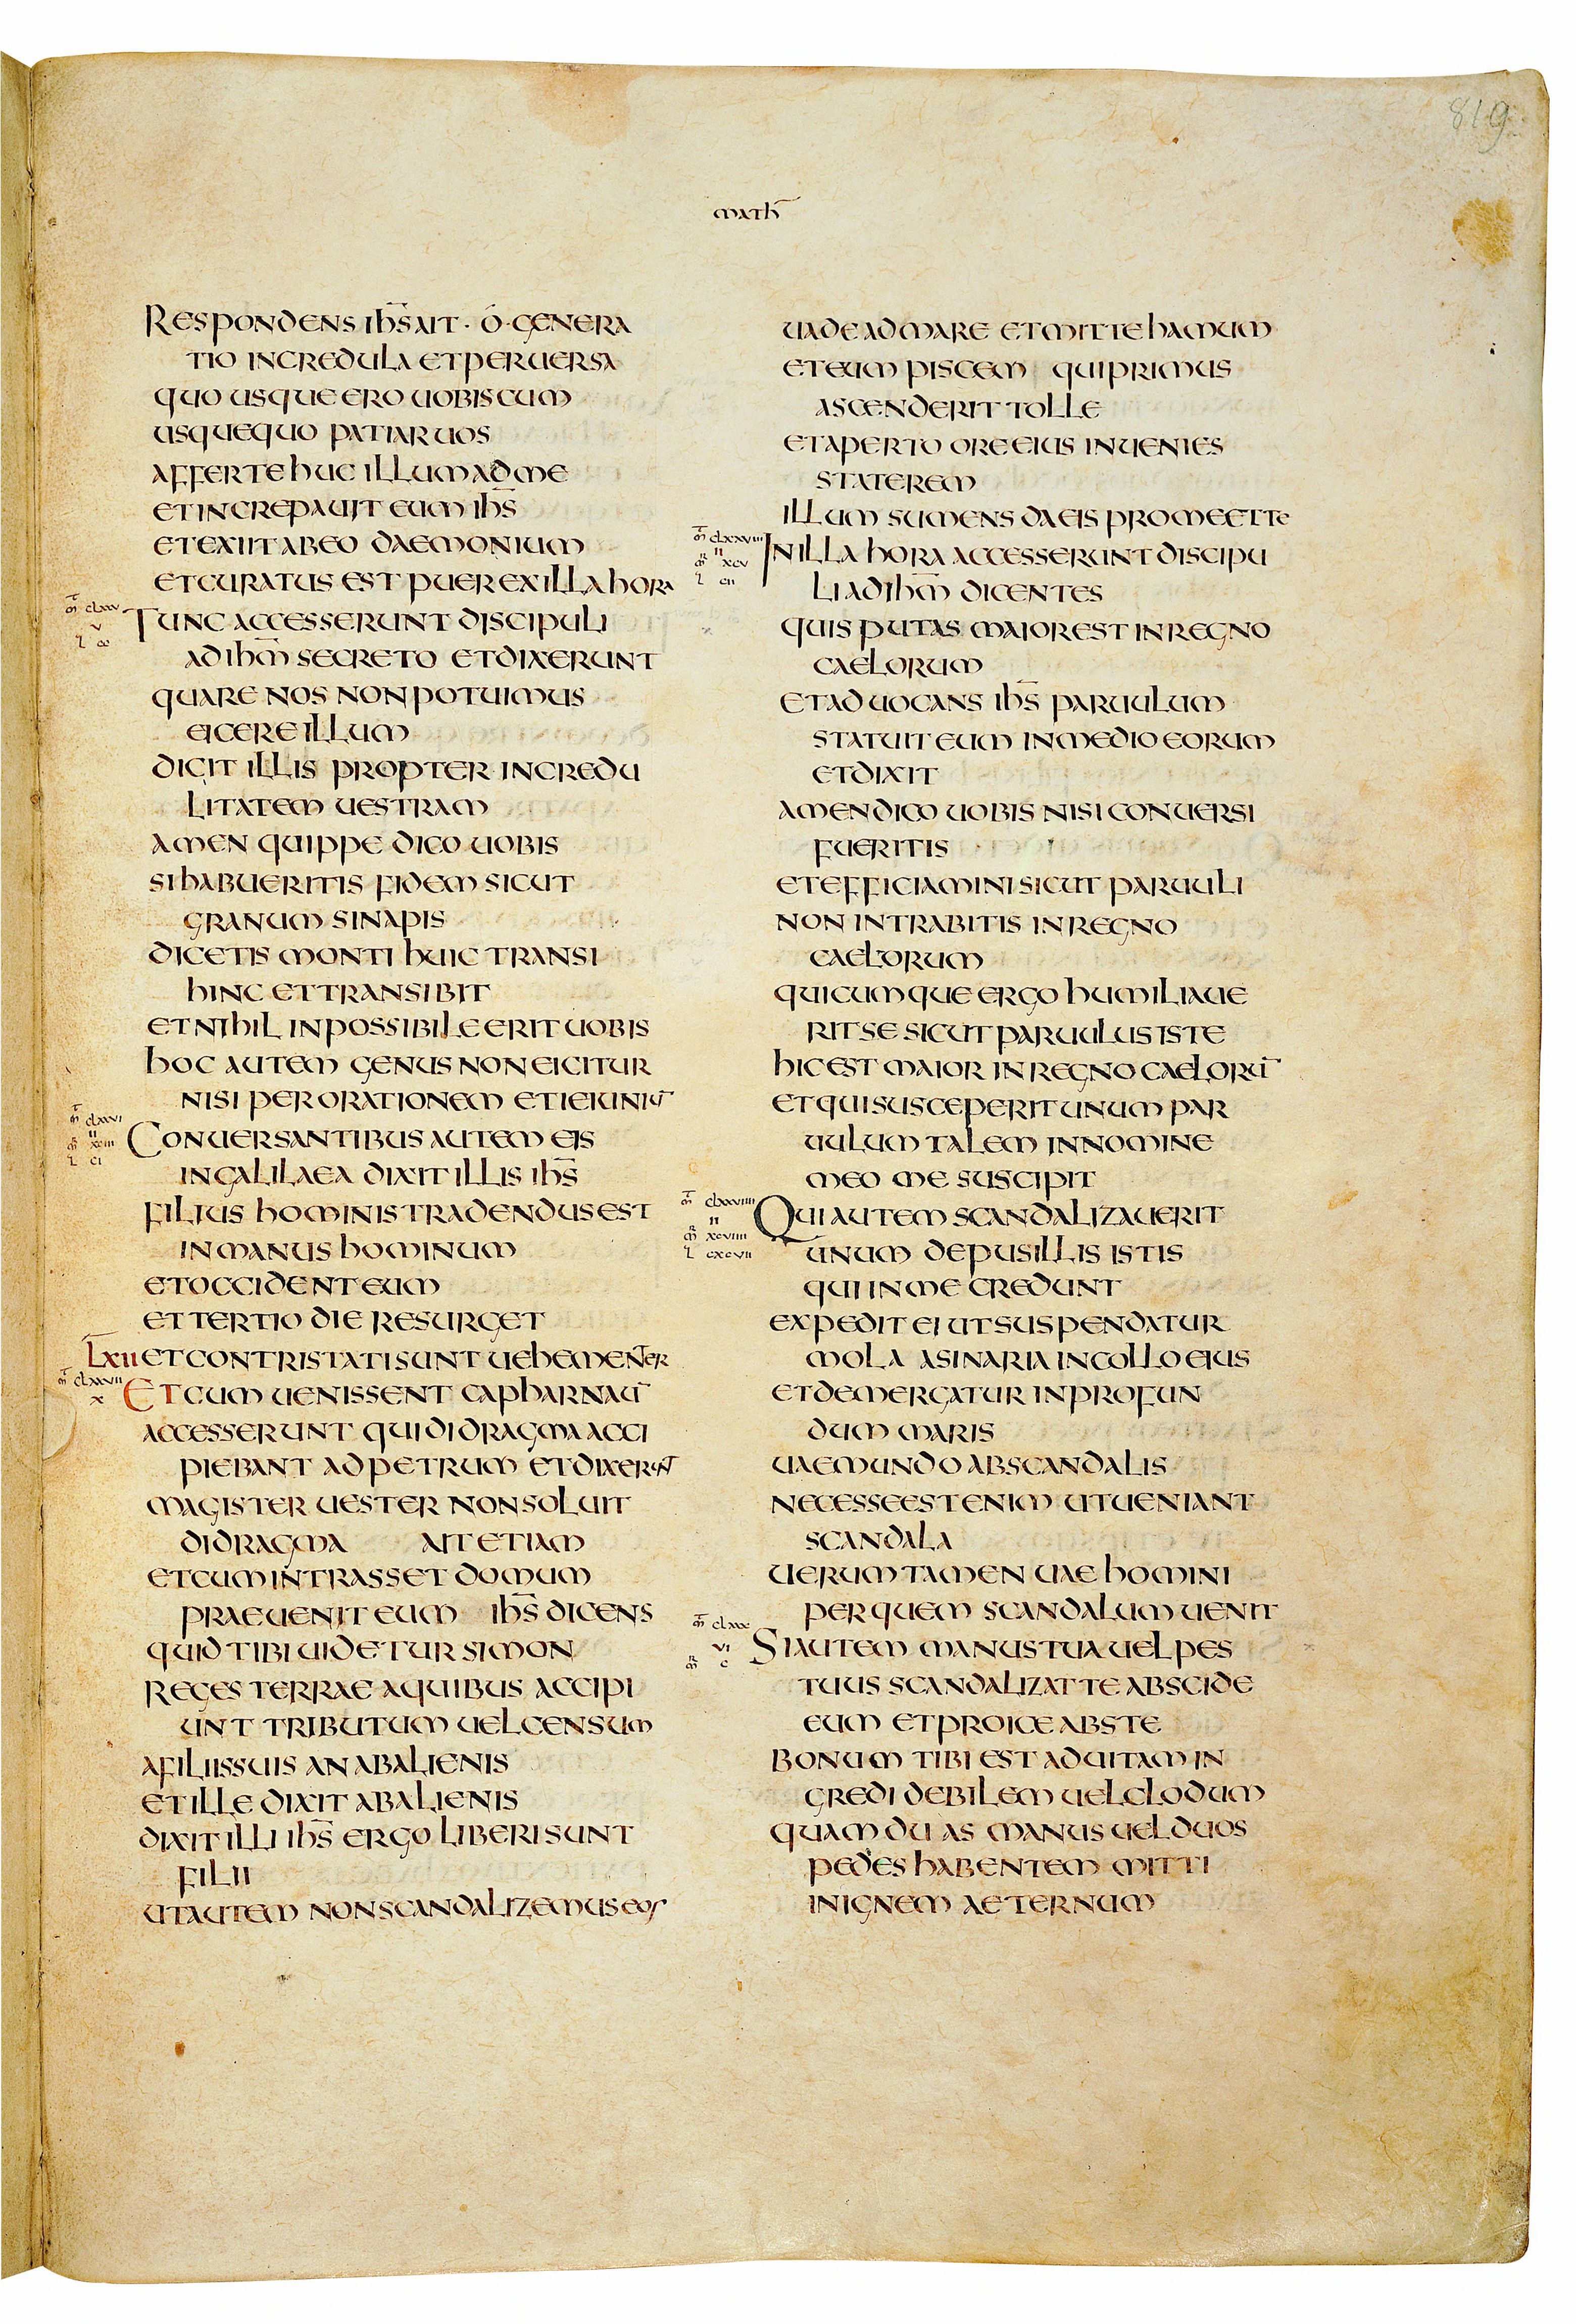 819
math̄
Respondens ih̄s ait · ó · genera
tio incredula et peruersa
quo usque ero uobiscum
usquequo patiar uos
afferte huc illum ad me
et increpauit eum ih̄s
et exiit ab eo daemonium
et curatus est puer ex illa hora
Tunc accesserunt discipuli
ad ih̄m secreto et dixerunt
quare nos non potuimus
eicere illum
dicit illis propter incredu
litatem uestram
amen quippe dico uobis
si habueritis fidem sicut
granum sinapis
dicetis monti huic transi
hinc et transibit
et nihil inpossibile erit uobis
hoc autem genus non eicitur
nisi per orationem et ieiuniū
Conuersantibus autem eis
in galilaea dixit illis ih̄s
filius hominis tradendus est
in manus hominum
et occident eum
et tertio die resurget
Lxii et contristati sunt uehementer
Et cum uenissent capharnaū
accesserunt qui didragma acci
piebant ad petrum et dixerunt
magister uester non soluit
didragma ait etiam
et cum intrasset domum
praeuenit eum ih̄s dicens
quid tibi uidetur simon
reges terrae a quibus accipi
unt tributum uel censum
a filiis suis an ab alienis
et ille dixit ab alienis
dixit illi ih̄s ergo liberi sunt
filii
ut autem non scandalizemus eos
uade ad mare et mitte hamum
et eum piscem qui primus
ascenderit tolle
et aperto ore eius inuenies
staterem
illum sumens da eis pro me et te
In illa hora accesserunt discipu
li ad ih̄m dicentes
quis putas maior est in regno
caelorum
et aduocans ih̄s paruulum
statuit eum in medio eorum
et dixit
amen dico uobis nisi conuersi
fueritis
et efficiamini sicut paruuli
non intrabitis in regno
caelorum
quicumque ergo humiliaue
rit se sicut paruulus iste
hic est maior in regno caelorū
et qui susceperit unum par
uulum talem in nomine
meo me suscipit
Qui autem scandalizauerit
unum de pusillis istis
qui in me credunt
expedit ei ut suspendatur
mola asinaria in collo eius
et demergatur in profun
dum maris
uae mundo ab scandalis
necesse est enim ut ueniant
scandala
uerum tamen uae homini
per quem scandalum uenit
Si autem manus tua uel pes
tuus scandalizat te abscide
eum et proice abs te
bonum tibi est ad uitam in
gredi debilem uel clodum
quam duas manus uel duos
pedes habentem mitti
in ignem aeternum